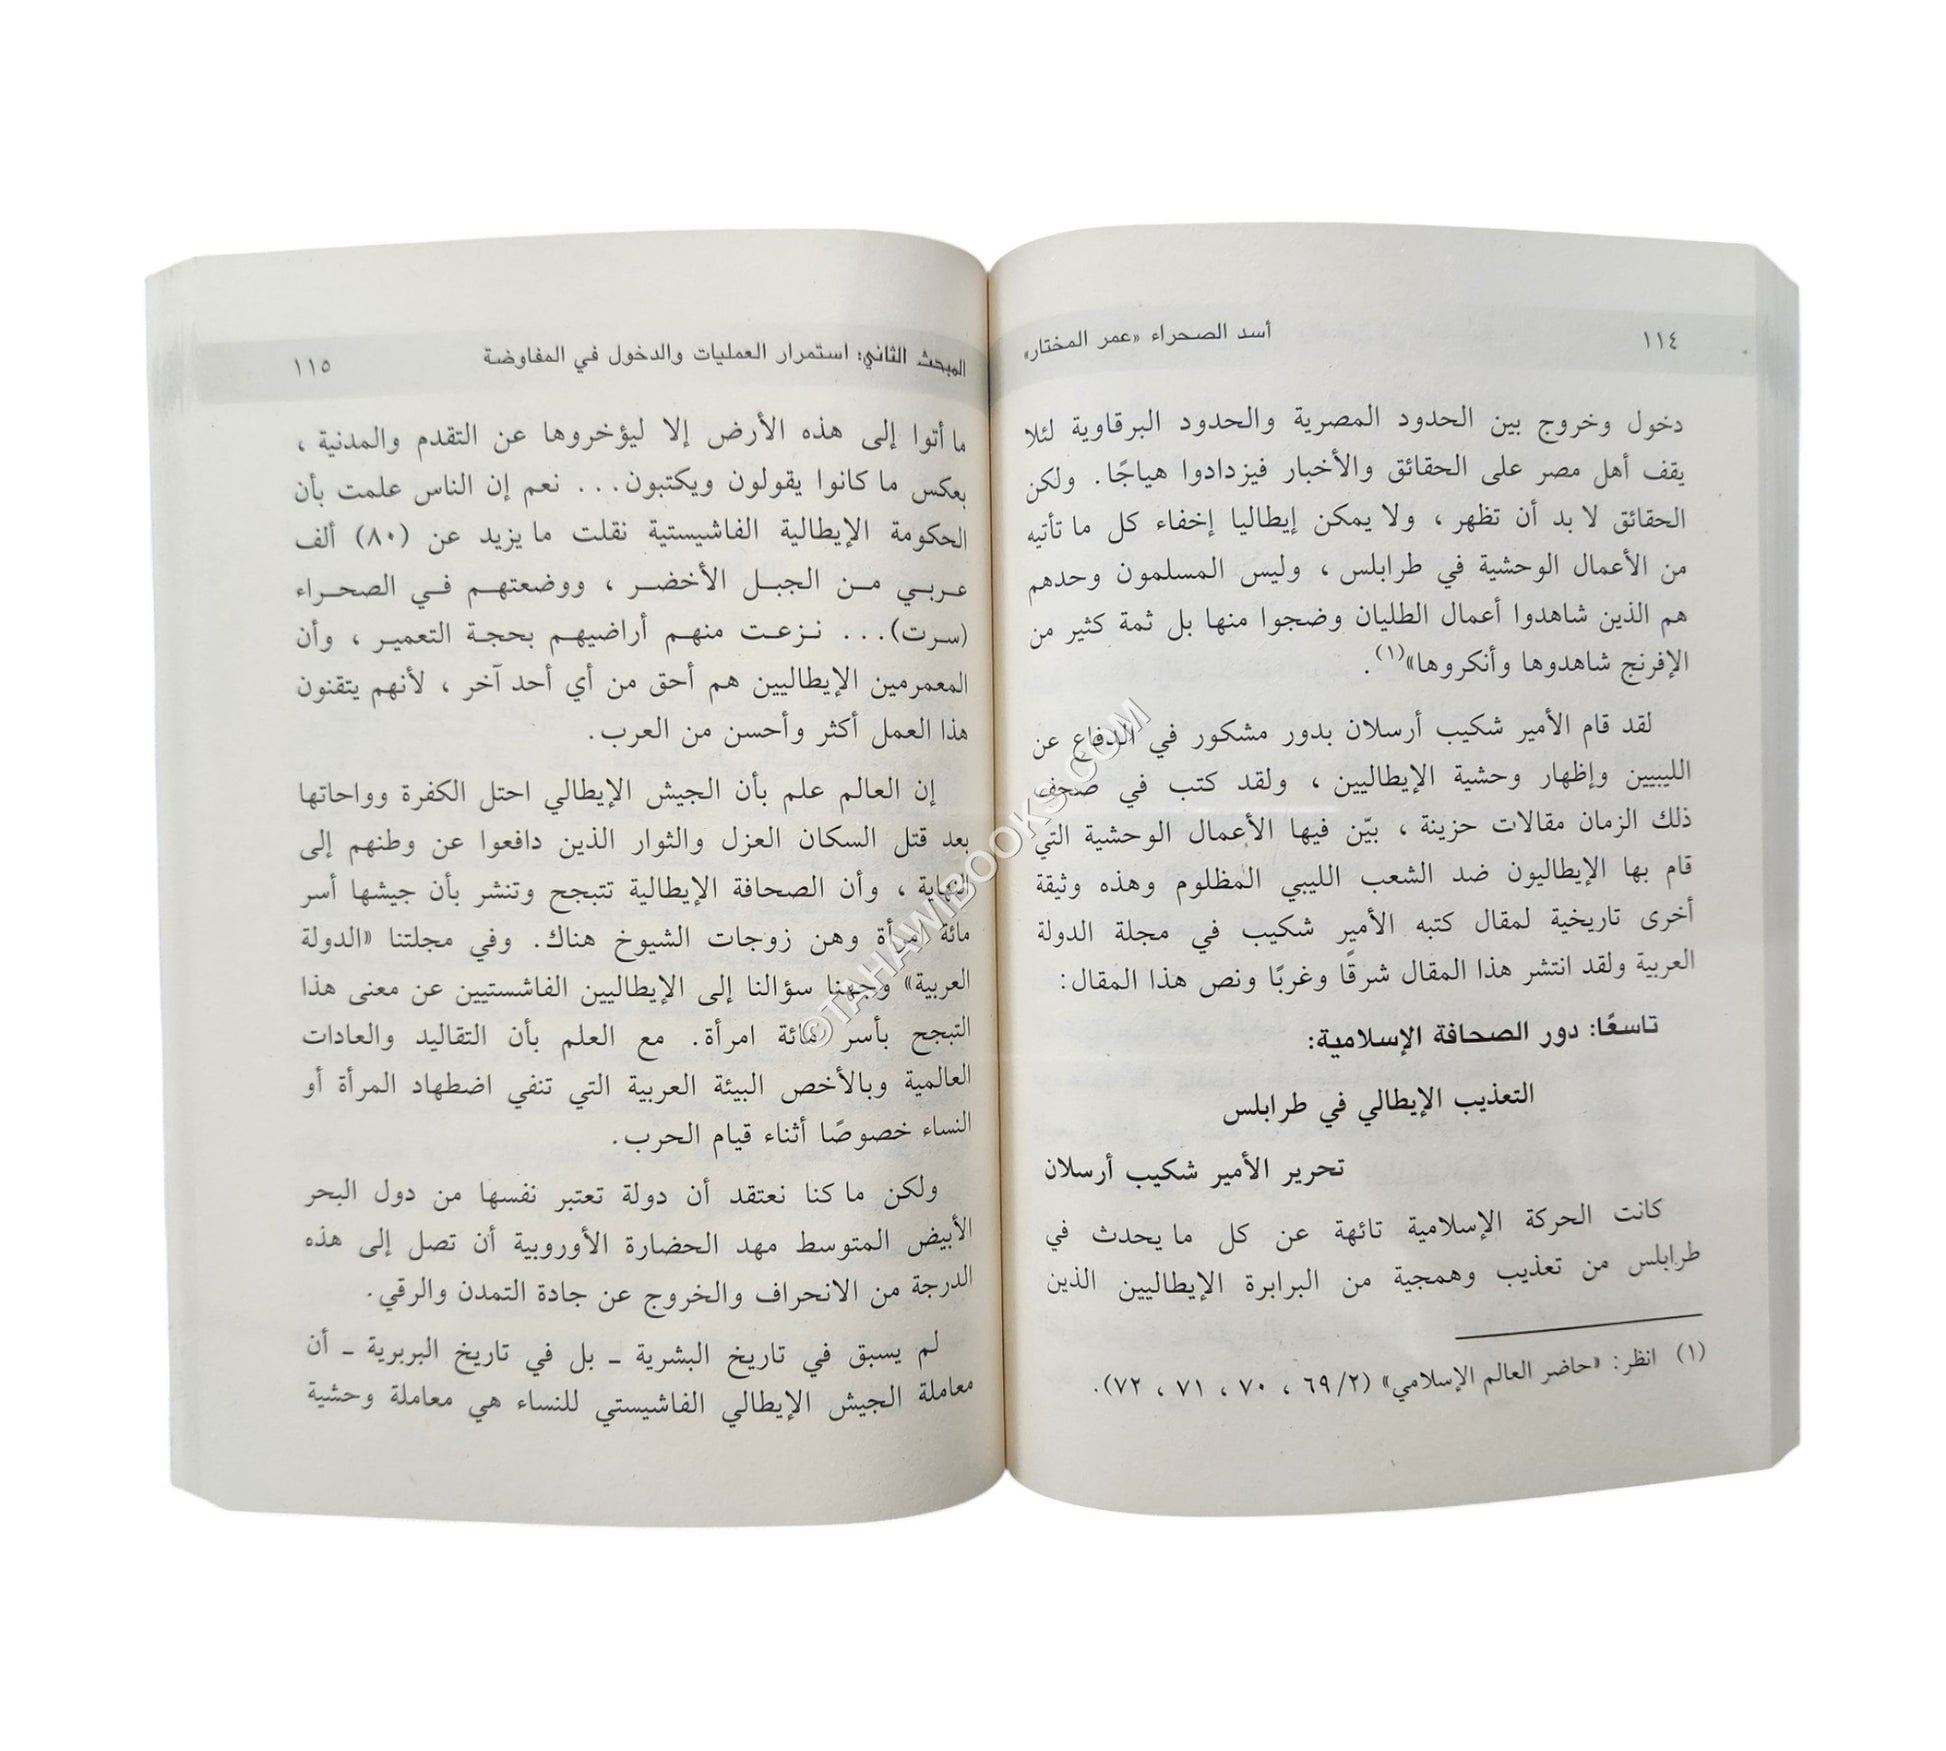 ١١٤
أسد الصحراء «عمر المختار»
دخول وخروج بين الحدود المصرية والحدود البرقاوية لئلا
يقف أهل مصر على الحقائق والأخبار فيزدادوا هياجًا. ولكن
الحقائق لا بد أن تظهر ، ولا يمكن إيطاليا إخفاء كل ما تأتيه
من الأعمال الوحشية في طرابلس ، وليس المسلمون وحدهم
هم الذين شاهدوا أعمال الطليان وضجوا منها بل ثمة كثير من
الإفرنج شاهدوها وأنكروها»(١).
لقد قام الأمير شكيب أرسلان بدور مشكور في الدفاع عن
الليبيين وإظهار وحشية الإيطاليين ، ولقد كتب في صحف
ذلك الزمان مقالات حزينة ، بيّن فيها الأعمال الوحشية التي
قام بها الإيطاليون ضد الشعب الليبي المظلوم وهذه وثيقة
أخرى تاريخية لمقال كتبه الأمير شكيب في مجلة الدولة
العربية ولقد انتشر هذا المقال شرقًا وغربًا ونص هذا المقال:
تاسعًا: دور الصحافة الإسلامية:
التعذيب الإيطالي في طرابلس
تحرير الأمير شكيب أرسلان
كانت الحركة الإسلامية تائهة عن كل ما يحدث في
طرابلس من تعذيب وهمجية من البرابرة الإيطاليين الذين
(١) انظر: «حاضر العالم الإسلامي» (٦٩/٢ ، ٧٠ ، ٧١ ، ٧٢).
المبحث الثاني: استمرار العمليات والدخول في المفاوضة
١١٥
ما أتوا إلى هذه الأرض إلا ليؤخروها عن التقدم والمدنية ،
بعكس ما كانوا يقولون ويكتبون... نعم إن الناس علمت بأن
الحكومة الإيطالية الفاشيستية نقلت ما يزيد عن (٨٠) ألف
عربي من الجبل الأخضر ، ووضعتهم في الصحراء
(سرت)... نزعت منهم أراضيهم بحجة التعمير ، وأن
المعمرمين الإيطاليين هم أحق من أي أحد آخر ، لأنهم يتقنون
هذا العمل أكثر وأحسن من العرب.
إن العالم علم بأن الجيش الإيطالي احتل الكفرة وواحاتها
بعد قتل السكان العزل والثوار الذين دافعوا عن وطنهم إلى
النهاية ، وأن الصحافة الإيطالية تتبجح وتنشر بأن جيشها أسر
مائة امرأة وهن زوجات الشيوخ هناك. وفي مجلتنا «الدولة
العربية» وجهنا سؤالنا إلى الإيطاليين الفاشستيين عن معنى هذا
التبجح بأسر مائة امرأة. مع العلم بأن التقاليد والعادات
العالمية وبالأخص البيئة العربية التي تنفي اضطهاد المرأة أو
النساء خصوصًا أثناء قيام الحرب.
ولكن ما كنا نعتقد أن دولة تعتبر نفسها من دول البحر
الأبيض المتوسط مهد الحضارة الأوروبية أن تصل إلى هذه
الدرجة من الانحراف والخروج عن جادة التمدن والرقي.
لم يسبق في تاريخ البشرية ـ بل في تاريخ البربرية ـ أن
معاملة الجيش الإيطالي الفاشيستي للنساء هي معاملة وحشية
©TAHAWIBOOKS.COM